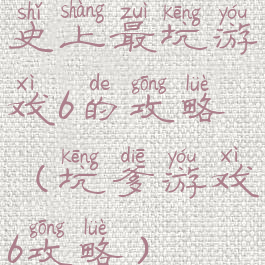 shǐ shàng zuì kēng yóu
史上最坑游
xì de gōng lüè
戏6的攻略
kēng diē yóu xì
（坑爹游戏
gōng lüè
6攻略）